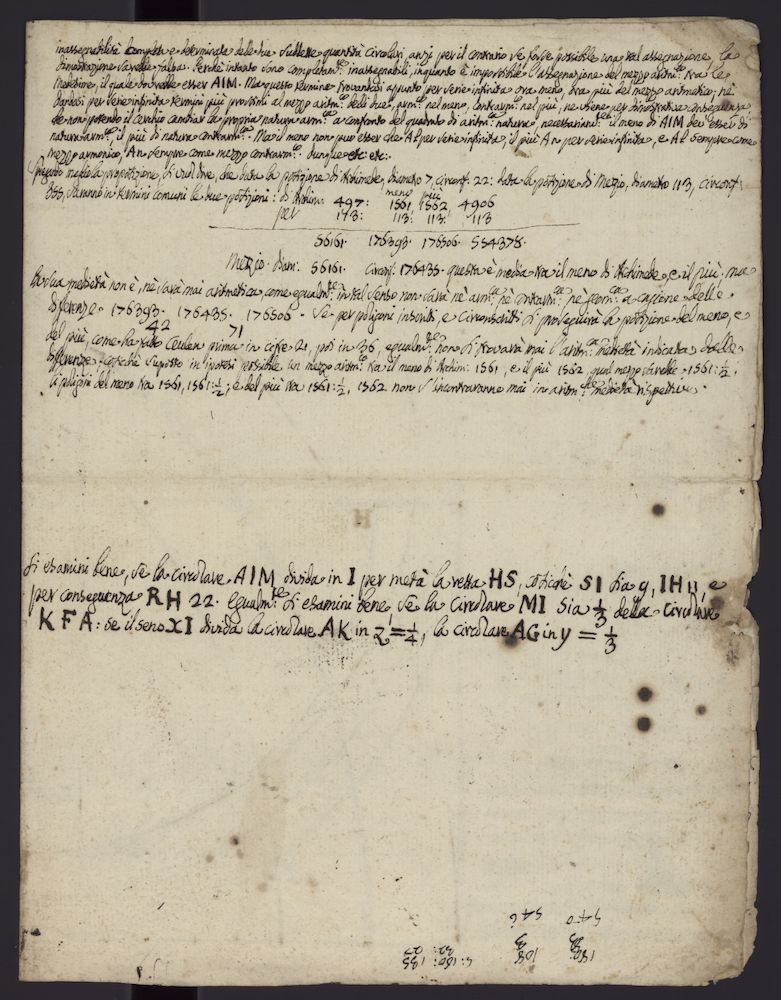 inassegnabilità completa e determinata delle due suddette quantità circolari, anzi per il contrario se fosse possibile una tal assegnazione, la
dimostrazione sarebbe falsa. Perchè intanto sono completam.te inassegnabili, inquanto è impossibile l'assegnazione del mezzo aritm.co tra le
medesime, il quale dovrebbe esser AIM. Ma questo termine trovandosi appunto per serie infinita ora meno, ora più del mezzo aritmetico, nè
dandosi per serie infinita termini più prossimi al mezzo aritm.co delli due, arm.co nel meno, contrarm.co nel più, ne viene per dimostrativa conseguenza
che non potendo il cerchio cambiar la propria natura arm.ca a confronto del quadrato di aritm.ca natura, necessariam.te il meno di AIM dev'esser di
natura arm.ca, il più di natura contrarm.ca. Ma il meno non può esser che Al per serie infinita, il più An per serie infinita, e Al sempre come
mezzo armonico, An sempre come mezzo contrarm.co: dunque etc: etc:
proposizione, si vuol dire, che data la posizione di Archimede, diametro 7, circonf: 22: data la posizione di Mezio, diametro 113, circonf:
355, saranno in termini comuni le due posizioni: di Archim: 497: meno 1561, più 1562 4906
per 113: 113: 113: 113
56161. 176393. 176506. 554378.
Mezio. Diam: 56161. Circonf: 176435. questa è media tra il meno di Archimede, e il più; ma
media non è, nè sarà mai aritmetica, come egualm.te in tal senso non sarà nè arm.ca nè contrarm.ca nè geom.ca a cagione delle
differenze. 176393. 176435. 176506. Se per poligoni inscritti, e circonscritti si proseguirà la posizione del meno, e
42 71
del più, come la Ceulen prima in cifre 21, poi in 36, egualm.te non si trovarà mai l'aritm.ca medietà indicata dalle
differenze; cosichè supposto in ipotesi possibile un mezzo aritm.co tra il meno di Archim: 1561, e il più 1562, qual mezzo sarebbe 1561:½,
li poligoni del meno tra 1561, 1561:½; e del più tra 1561:½, 1562 non s'incontraranno mai in aritm.ca medietà rispettiva.
Si esamini bene, se la circolare AIM divida in I per metà la retta HS, cosichè SI sia 9, IH 11, e
per conseguenza RH 22. Egualm.te si esamini bene se la Circolare MI sia ⅓ della Circolare
KFA: se il seno XI divida la circolare AK in z = ¼, la circolare AG in y = ⅓